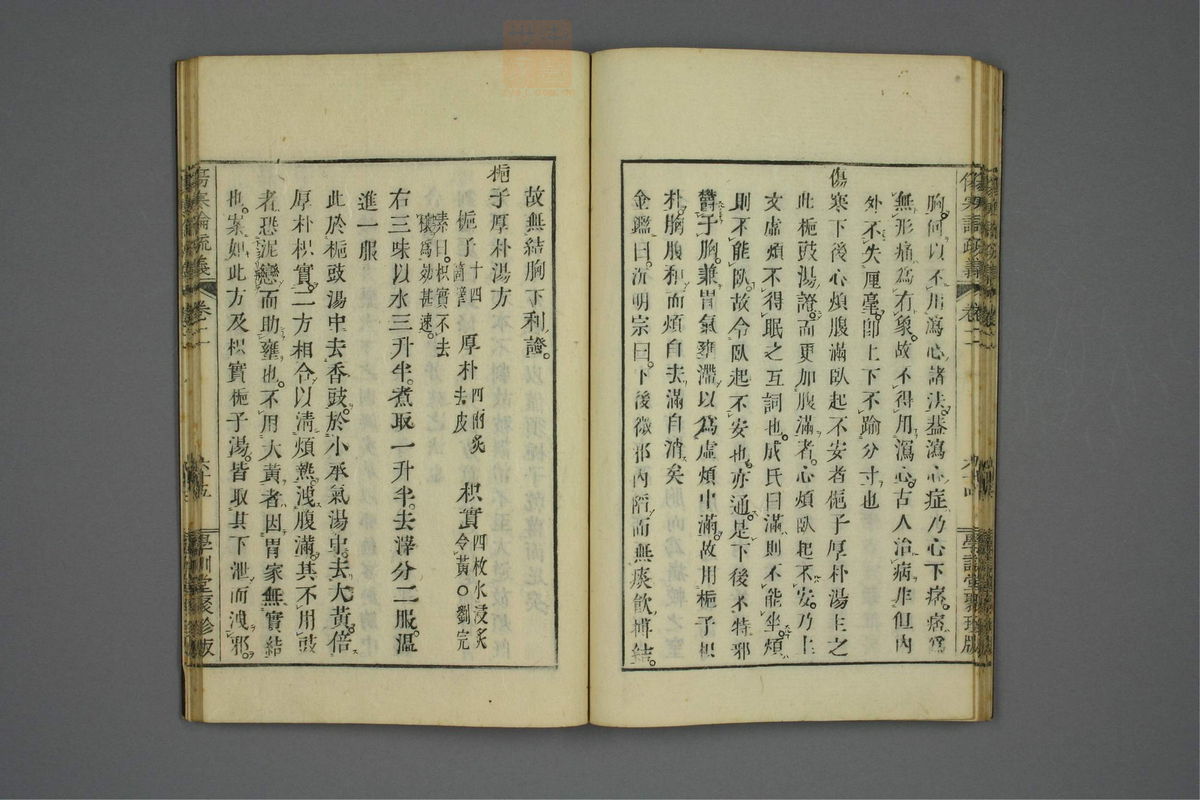 胸何以不用瀉心諸法蓋瀉心症乃心下痞痞爲
無形痛爲有象故不得用瀉心古人治病非但內
外不失厘毫卽上下不踰分寸也
傷寒下後心煩腹滿臥起不安者梔子厚朴湯主之
此梔豉湯證而更加腹滿者心煩臥起不安乃上
文虛煩不得眠之互詞也成氏曰滿則不能坐煩
則不能臥故令臥起不安也亦通是下後不特邪
鬱于胸兼胃氣壅滯以爲虛煩中滿故用梔子枳
朴胸腹和而煩自去滿自消矣
金鑑曰沉明宗曰下後微邪內陷而無痰飮摶結
傷寒論疏義 卷二 六十四 學訓堂聚珍版
故無結胸下利證
梔子厚朴湯方
梔子十四箇擘 厚朴四兩炙去皮 枳實四枚水浸炙令黃○劉完
素曰枳實不去穰爲効甚速
右三味以水三升半煮取一升半去滓分二服溫
進一服
此於梔豉湯中去香豉於小承氣湯中去大黃倍
厚朴枳實二方相合以淸煩熱洩腹滿其不用豉
者恐泥戀而助壅也不用大黃者因胃家無實結
也案如此方及枳實梔子湯皆取其下泄而洩邪
傷寒論疏義 卷二 六十五 學訓堂聚珍版